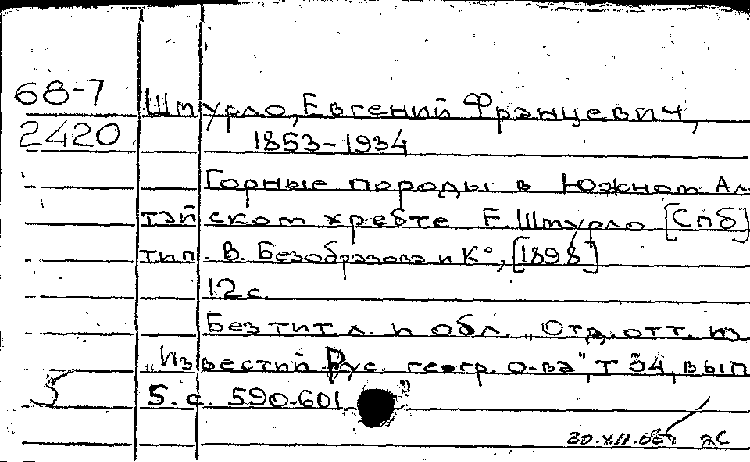 68-7
Шмурло, Евгений Францевич,
2420
1853-1934
Горные породы в Южном Ал
тайском хребте Е. Шмурло [Спб]
тип. В. Безобразова и К°, [1898]
12 с.
Без тит. л. и обл. Отд. отт. из
"Известий Рус. геогр. о-ва", т 34, вып
5. с. 590-601
5